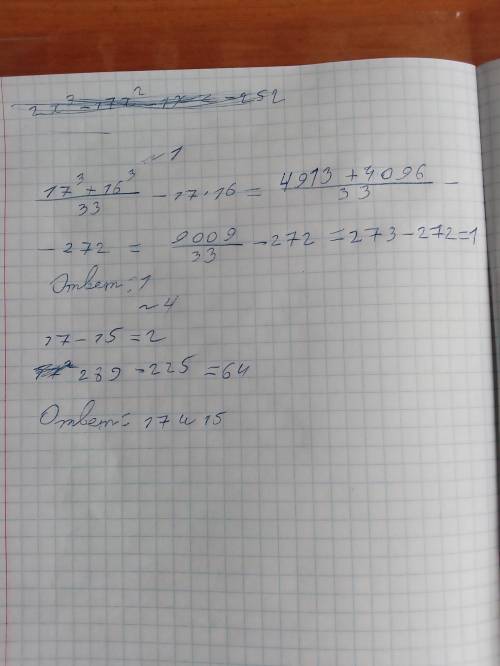 ~ 1
17³ + 16³ / 33 - 17 · 16 = 4913 + 4096 / 33 -
- 272 = 9009 / 33 - 272 = 273 - 272 = 1
Ответ: 1
~ 4
17 - 15 = 2
289 - 225 = 64
Ответ: 17 и 15